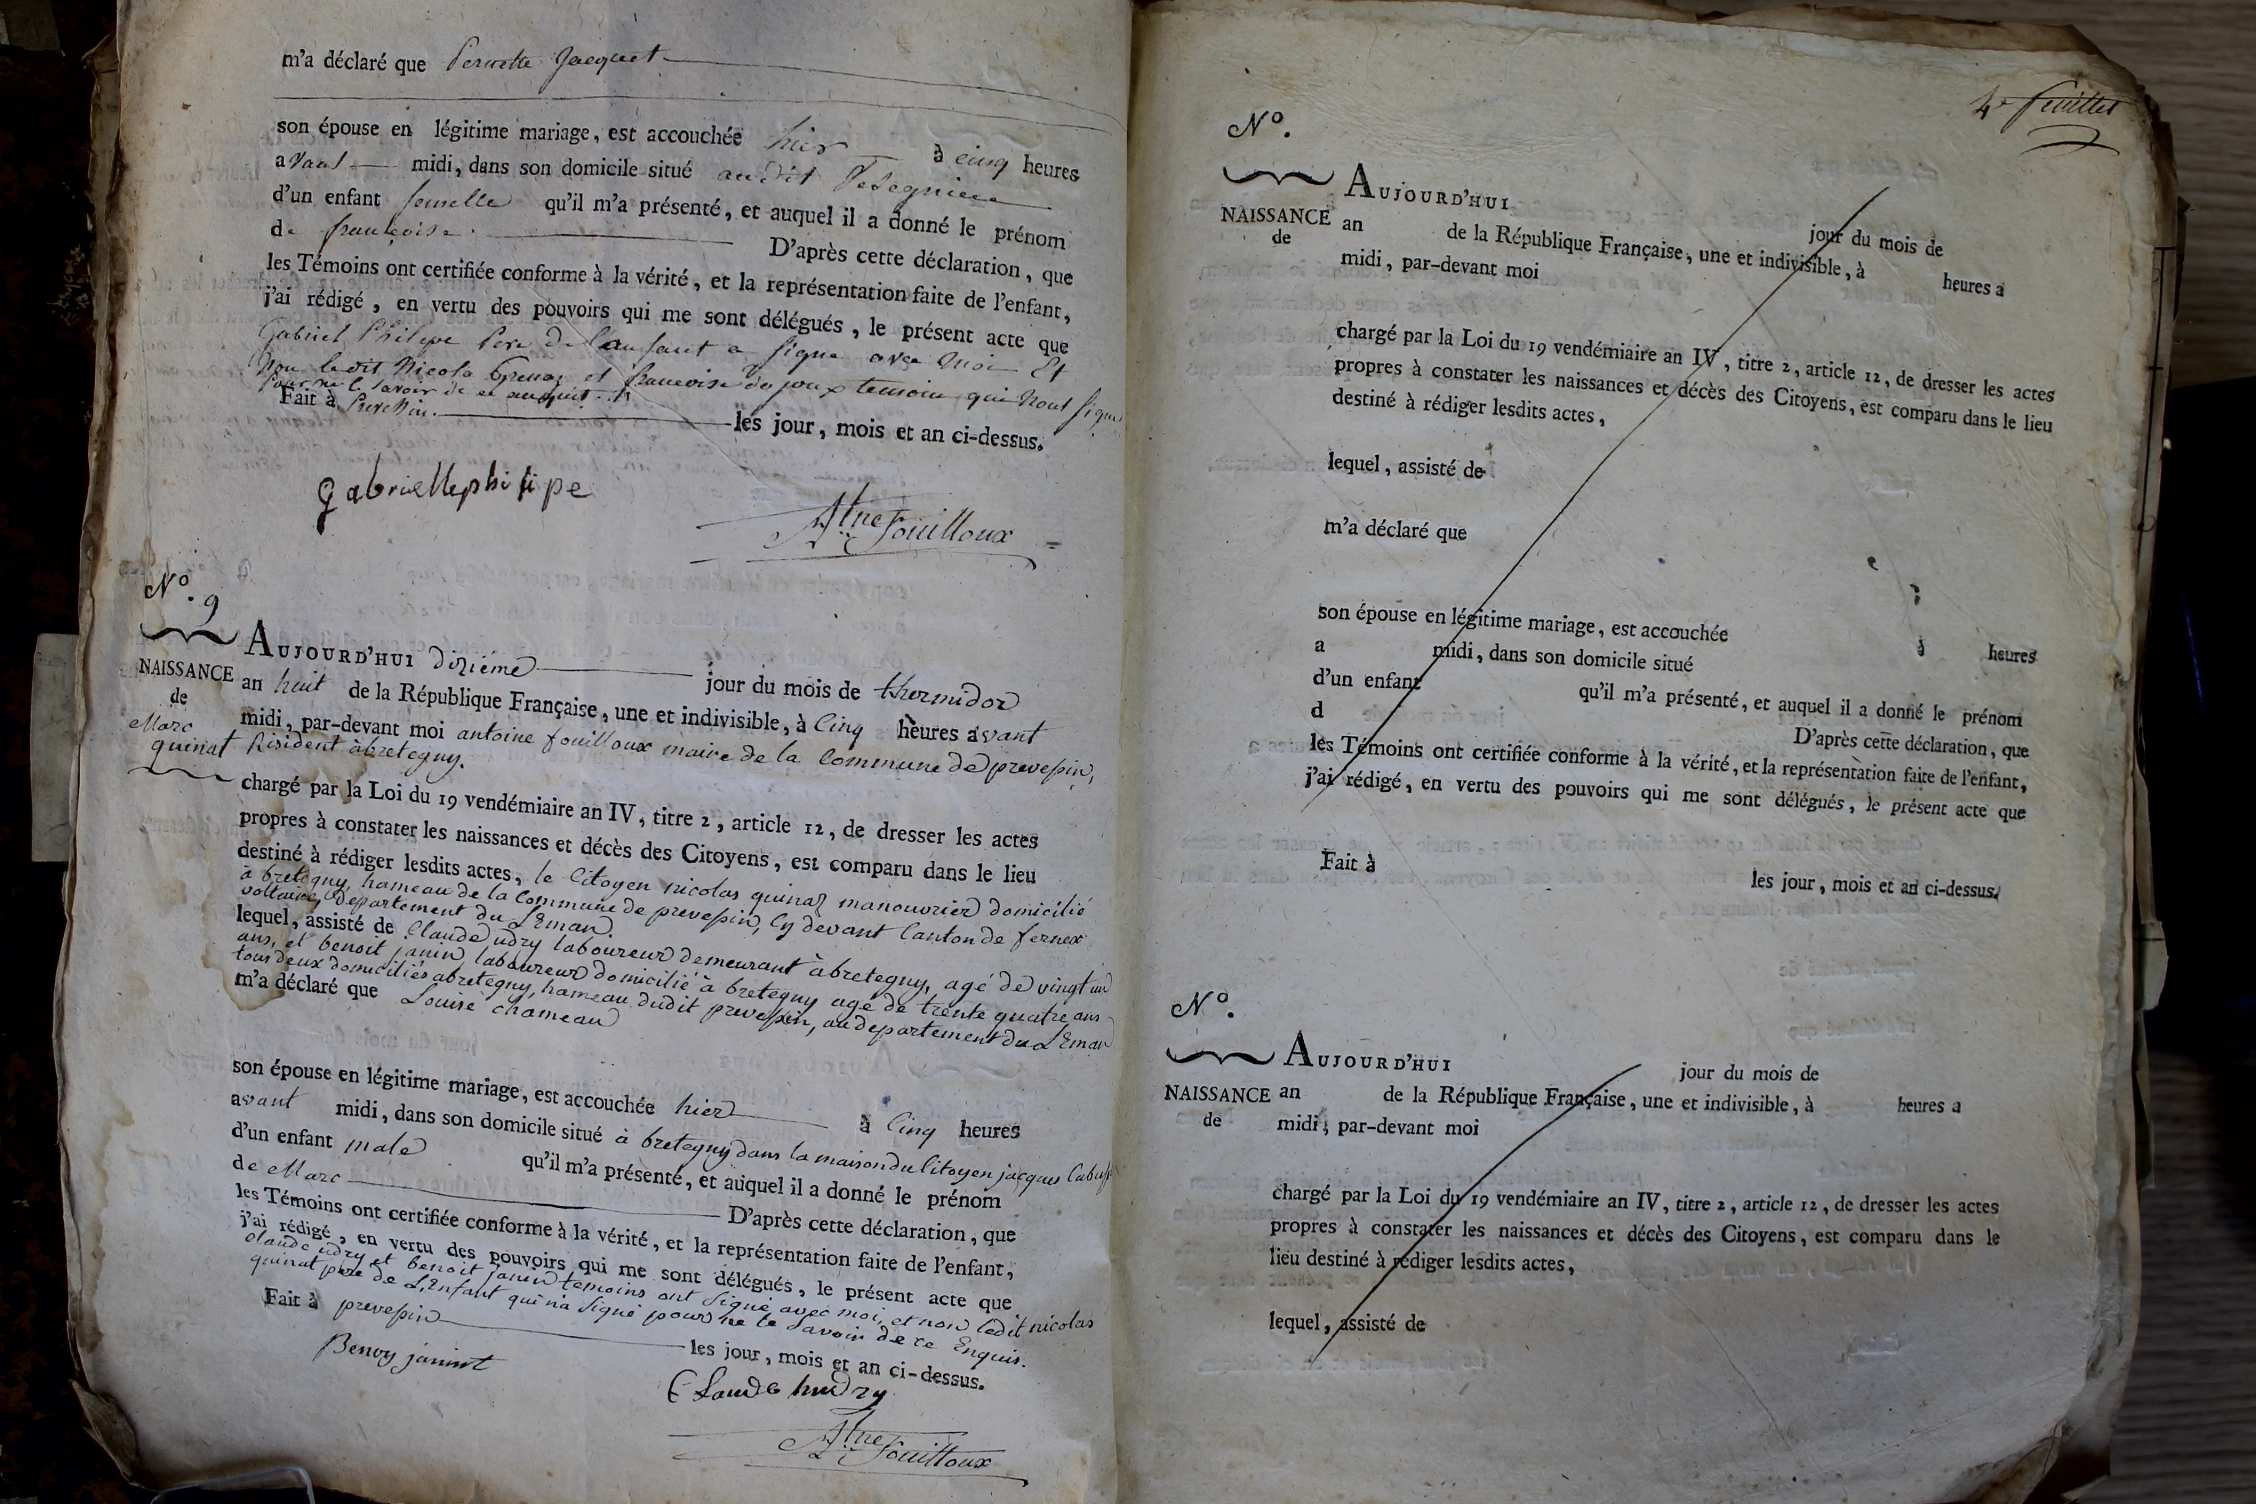 m'a déclaré que Pernette Jacquet
son épouse en légitime mariage, est accouchée hier à cinq heures
avant midi, dans son domicile situé audit
d'un enfant femelle qu'il m'a présenté, et auquel il a donné le prénom
de françoise. D'après cette déclaration, que
les Témoins ont certifiée conforme à la vérité, et la représentation faite de l'enfant,
j'ai rédigé, en vertu des pouvoirs qui me sont délégués, le présent acte que
Gabriel Philipe Pere De l'anfant a signe avec moi Et
Non ledit Nicola et francoise dejoux temoin qui Nont signe
pour ne le savoir de ce anquit.
Fait à Prevessin. les jour, mois et an ci-dessus.
gabriellephilipe
Atne Fouilloux
N°. 9
NAISSANCE
de
Marc
quinat
AUJOURD'HUI dixiéme jour du mois de thermidor
an huit de la République Française, une et indivisible, à Cinq heures avant
midi, par-devant moi antoine fouilloux maire de la Commune de prevessin,
Résident à bretegny.
chargé par la Loi du 19 vendémiaire an IV, titre 2, article 12, de dresser les actes
propres à constater les naissances et décès des Citoyens, est comparu dans le lieu
destiné à rédiger lesdits actes, le Citoyen nicolas quinaz manouvrier domicilié
à bretegny, hameau de la Commune de prevessin, Cy devant Canton de fernex
voltaire, Département du LEman.
lequel, assisté de Claude udry laboureur demeurant à bretegny, agé de vingt un
ans, et benoit janin laboureur domicilié à bretegny agé de trente quatre ans
tous deux domiciliés abretegny, hameau dudit prevessin, au departement du LEman
m'a déclaré que Louise chameau
son épouse en légitime mariage, est accouchée hier à Cinq heures
avant midi, dans son domicile situé à bretegny dans la maison du Citoyen jacques
d'un enfant male qu'il m'a présenté, et auquel il a donné le prénom
de Marc D'après cette déclaration, que
les Témoins ont certifiée conforme à la vérité, et la représentation faite de l'enfant,
j'ai rédigé, en vertu des pouvoirs qui me sont délégués, le présent acte que
claude udry et benoit janin temoins ont signé avec moi, et non ledit nicolas
quinat pere de L'Enfant qui n'a signé pour ne le savoir de ce Enquis.
Fait à prevessin les jour, mois et an ci-dessus.
Benoy janint
Claude hudry
Atne Fouilloux
4e feuillet
N°.
NAISSANCE
de
AUJOURD'HUI jour du mois de
an de la République Française, une et indivisible, à heures a
midi, par-devant moi
chargé par la Loi du 19 vendémiaire an IV, titre 2, article 12, de dresser les actes
propres à constater les naissances et décès des Citoyens, est comparu dans le lieu
destiné à rédiger lesdits actes,
lequel, assisté de
m'a déclaré que
son épouse en légitime mariage, est accouchée à heures
a midi, dans son domicile situé
d'un enfant qu'il m'a présenté, et auquel il a donné le prénom
d D'après cette déclaration, que
les Témoins ont certifiée conforme à la vérité, et la représentation faite de l'enfant,
j'ai rédigé, en vertu des pouvoirs qui me sont délégués, le présent acte que
Fait à les jour, mois et an ci-dessus.
N°.
NAISSANCE
de
AUJOURD'HUI jour du mois de
an de la République Française, une et indivisible, à heures a
midi, par-devant moi
chargé par la Loi du 19 vendémiaire an IV, titre 2, article 12, de dresser les actes
propres à constater les naissances et décès des Citoyens, est comparu dans le
lieu destiné à rédiger lesdits actes,
lequel, assisté de